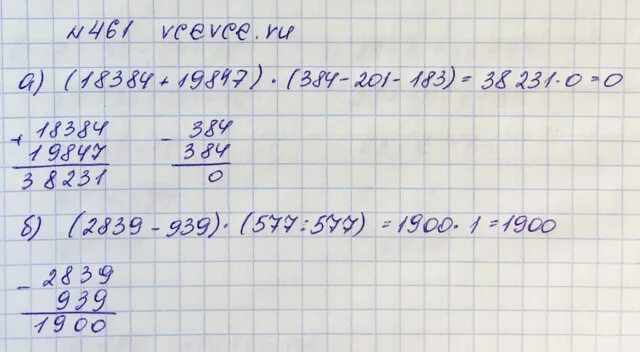 №461 vcevce.ru
а) (18384+19847)·(384-201-183)=38231·0=0
+ 18384 - 384
19847 384
38231 0
б) (2839-939)·(577:577)=1900·1=1900
- 2839
939
1900